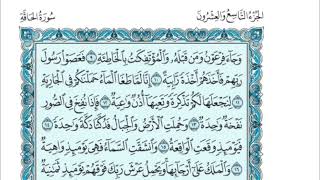 الجزء التاسع والعشرون
سورة الحاقة
وَجَاءَ فِرْعَوْنُ وَمَن قَبْلَهُ وَالْمُؤْتَفِكَاتُ بِالْخَاطِئَةِ ٩ فَعَصَوْا رَسُولَ
رَبِّهِمْ فَأَخَذَهُمْ أَخْذَةً رَّابِيَةً ١٠ إِنَّا لَمَّا طَغَا الْمَاءُ حَمَلْنَاكُمْ فِي الْجَارِيَةِ
١١ لِنَجْعَلَهَا لَكُمْ تَذْكِرَةً وَتَعِيَهَا أُذُنٌ وَاعِيَةٌ ١٢ فَإِذَا نُفِخَ فِي الصُّورِ
نَفْخَةٌ وَاحِدَةٌ ١٣ وَحُمِلَتِ الْأَرْضُ وَالْجِبَالُ فَدُكَّتَا دَكَّةً وَاحِدَةً ١٤
فَيَوْمَئِذٍ وَقَعَتِ الْوَاقِعَةُ ١٥ وَانشَقَّتِ السَّمَاءُ فَهِيَ يَوْمَئِذٍ وَاهِيَةٌ
١٦ وَالْمَلَكُ عَلَى أَرْجَائِهَا وَيَحْمِلُ عَرْشَ رَبِّكَ فَوْقَهُمْ يَوْمَئِذٍ ثَمَانِيَةٌ